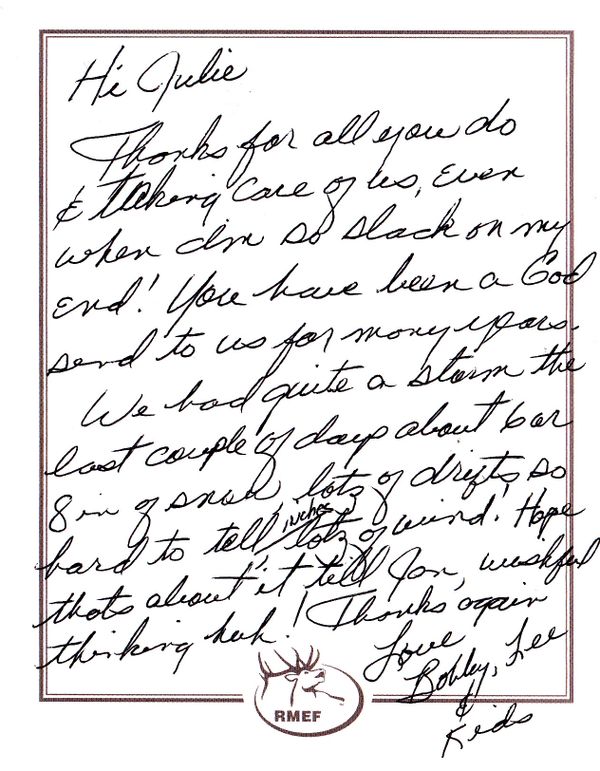 Hi Julie
Thanks for all you do
& taking care of us, even
when I'm so slack on my
end! You have been a God
send to us for many years.
We had quite a storm the
last couple of days about 6 or
8 in of snow, lots of drifts so
inches
hard to tell, lots of wind! Hope
thats about it till Jan, wishful
thinking huh! Thanks again
Love
Bobby, Lee
&
Kids
RMEF